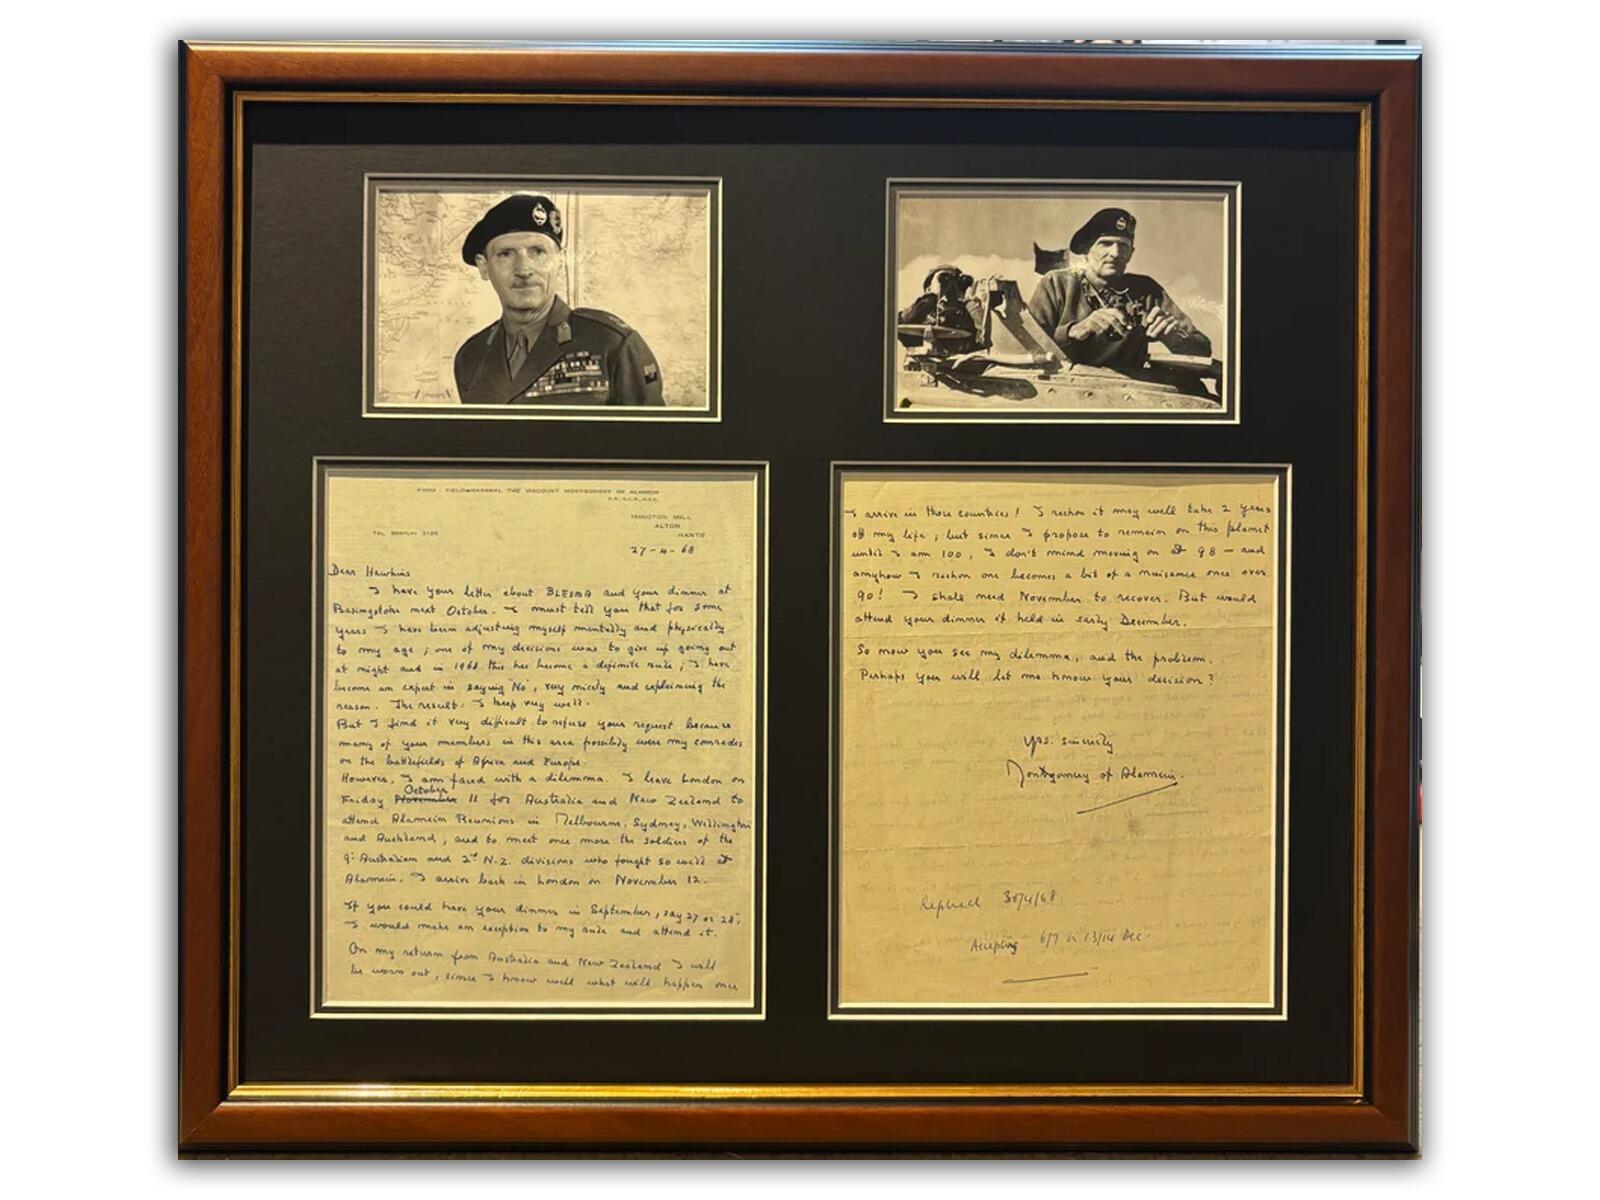 FROM: FIELD-MARSHAL THE VISCOUNT MONTGOMERY OF ALAMEIN
K.G., G.C.B., D.S.O.
ISINGTON MILL
ALTON
HANTS
TEL. BENTLEY 3126
27-4-68
Dear Hawkins
I have your letter about BLESMA and your dinner at
Basingstoke next October. I must tell you that for some
years I have been adjusting myself mentally and physically
to my age; one of my decisions was to give up going out
at night and in 1968 this has become a definite rule; I have
become an expert in saying 'No', very nicely and explaining the
reason. The result: I keep very well.
But I find it very difficult to refuse your request because
many of your members in this area possibly were my comrades
on the battlefields of Africa and Europe.
However, I am faced with a dilemma. I leave London on
October
Friday November 11 for Australia and New Zealand to
attend Alamein Reunions in Melbourne, Sydney, Wellington
and Auckland, and to meet once more the soldiers of the
9: Australian and 2nd N.Z. divisions who fought so well at
Alamein. I arrive back in London on November 12.
If you could have your dinner in September, say 27 or 28,
I would make an exception to my rule and attend it.
On my return from Australia and New Zealand I will
be worn out, since I know well what will happen once
I arrive in those countries! I reckon it may well take 2 years
off my life; but since I propose to remain on this planet
until I am 100, I don't mind moving on at 98 - and
anyhow I reckon one becomes a bit of a nuisance once over
90! I shall need November to recover. But would
attend your dinner if held in early December.
So now you see my dilemma, and the problem.
Perhaps you will let me know your decision?
Yrs. sincerely
Montgomery of Alamein.
Replied 30/4/68
Accepting 6/7 or 13/14 Dec.